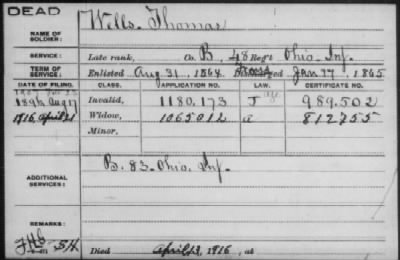 DEAD
NAME OF SOLDIER: Wells, Thomas
SERVICE: Late rank, Co. B, 48 Reg't Ohio Inf.
TERM OF SERVICE: Enlisted Aug 31, 1864 Discharged Jan 17, 1865
DATE OF FILING. CLASS. APPLICATION NO. LAW. CERTIFICATE NO.
1907
1896 Aug 17 Invalid, 1180.173 J 989.502
1916, April 21 Widow, 1065012 812755
Minor,
ADDITIONAL SERVICES: B. 83. Ohio. Inf.
REMARKS:
Died April 13, 1916, at